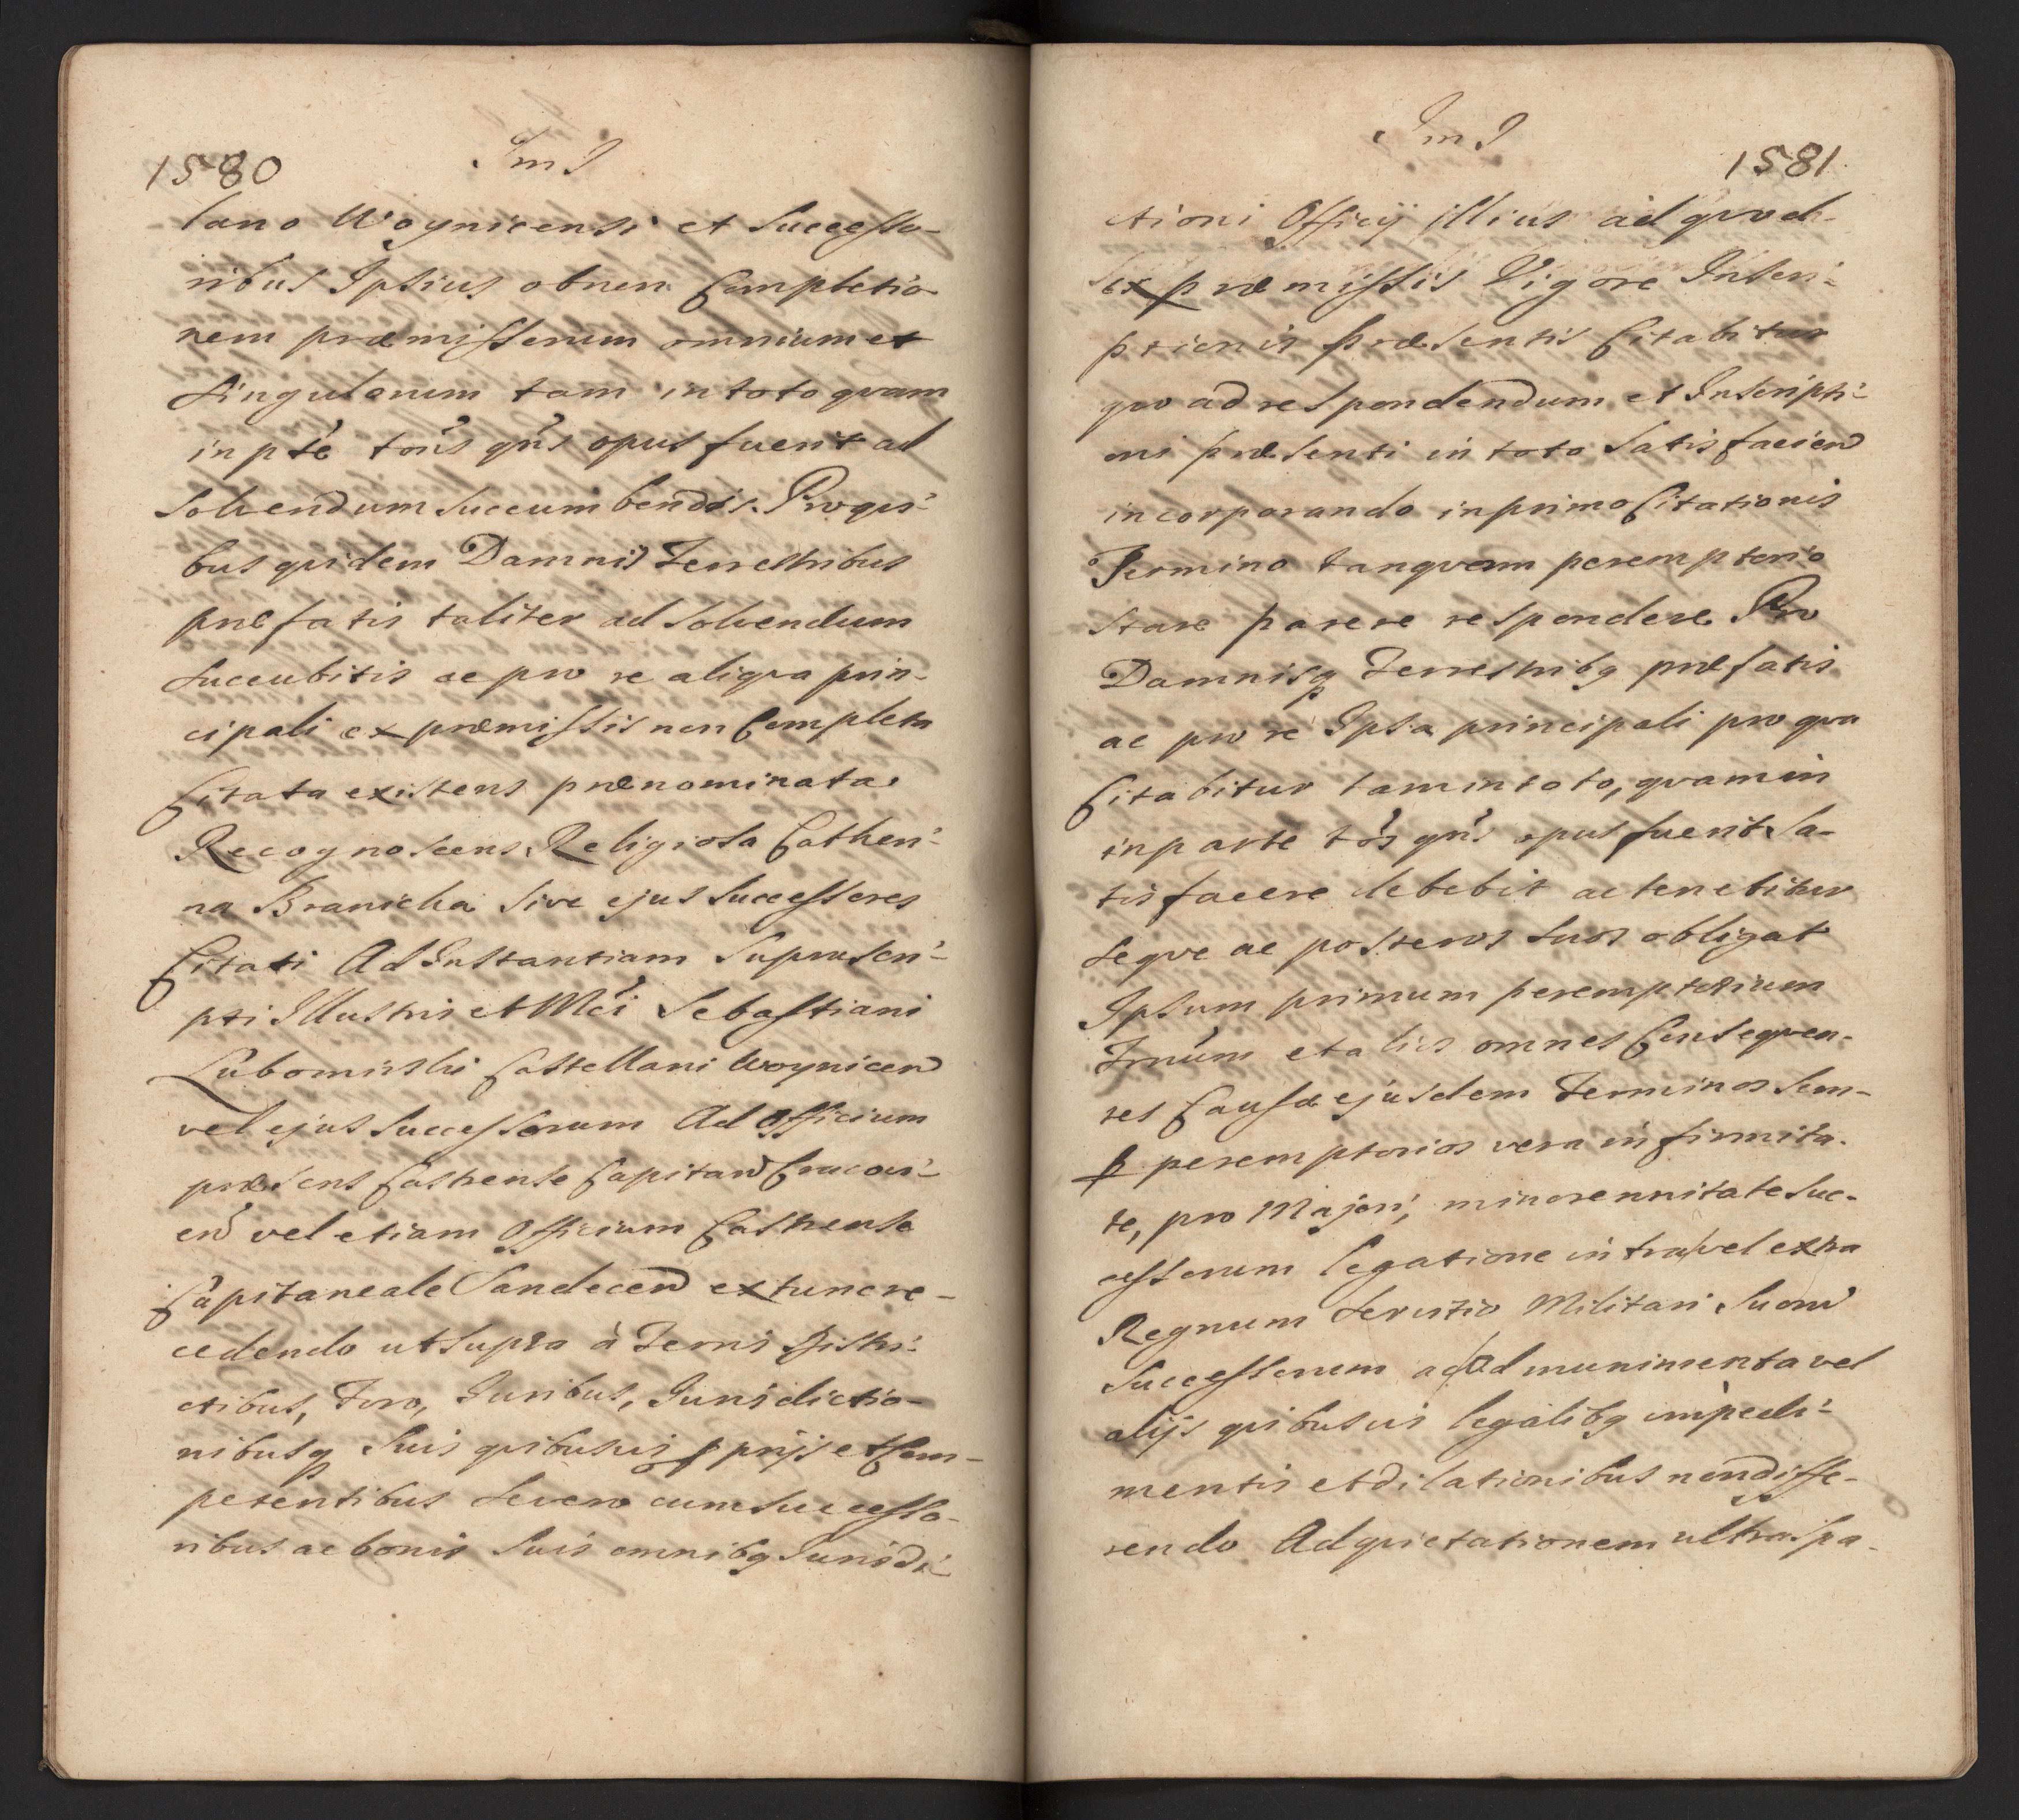 1580
Im J
lano Woynicensi et Successo-
ribus Ipsius obnon Completio-
nem præmissorum omnium et
singulorum tam in toto qvam
in pte toūs qn̄s opus fuerit ad
solvendum succumbendis. Pro qvi-
bus qvidem Damnis Terrestribus
præfatis taliter ad solvendum
succubitis ac pro re aliqva prin-
cipali ex præmissis non Completa
Citata existens prænominata
Recognoscens Religiosa Cathen-
na Branicka sive ejus Successores
Citati Ad Instantiam Suprascri-
pti Illustris et Mci Sebastiani
Lubomirski Castellani Woynicen
vel ejus Successorum Ad Officium
præsens Castrense Capitan Cracovi-
en vel etiam Officium Castrense
Capitaneale Sandecen ex tunc re-
cedendo ut supra à Terris Distri-
ctibus, Foro, Juribus, Jurisdictio-
nibusq suis qvibusvis pprijs et Com-
petentibus se vero cum Successo-
ribus ac bonis suis omnibq Jurisdi-
Im J
1581
ctioni Officij illius ad qvod
ex præmissis Vigore Inscri-
ptionis præsentis Citabitur
qvo ad respondendum et Inscripti-
oni præsenti in toto satisfacien
incorporando in primo Citationis
Termino tanqvam peremptorio
stare parere respondere Pro
Damnisq Terrestribq præfatis
ac pro re Ipsa principali pro qva
Citabitur tam in toto, qvam in
in parte tōs qn̄s opus fuerit sa-
tisfacere debebit ac tenebitur
seqve ac posteros suos obligat
Ipsum primum peremptorium
Trnūm et alios omnes Conseqven-
tes Causæ ejusdem Terminos sem-
p peremptorios vera infirmita-
te, pro Majori, minorennitate suc-
cessorum legatione intra vel extra
Regnum servitio Militari suorū
Successorum ad munimenta vel
alijs qvibusvis legalibq impedi-
mentis et dilationibus non diffe-
rendo Ad qvietationem ultra spa-